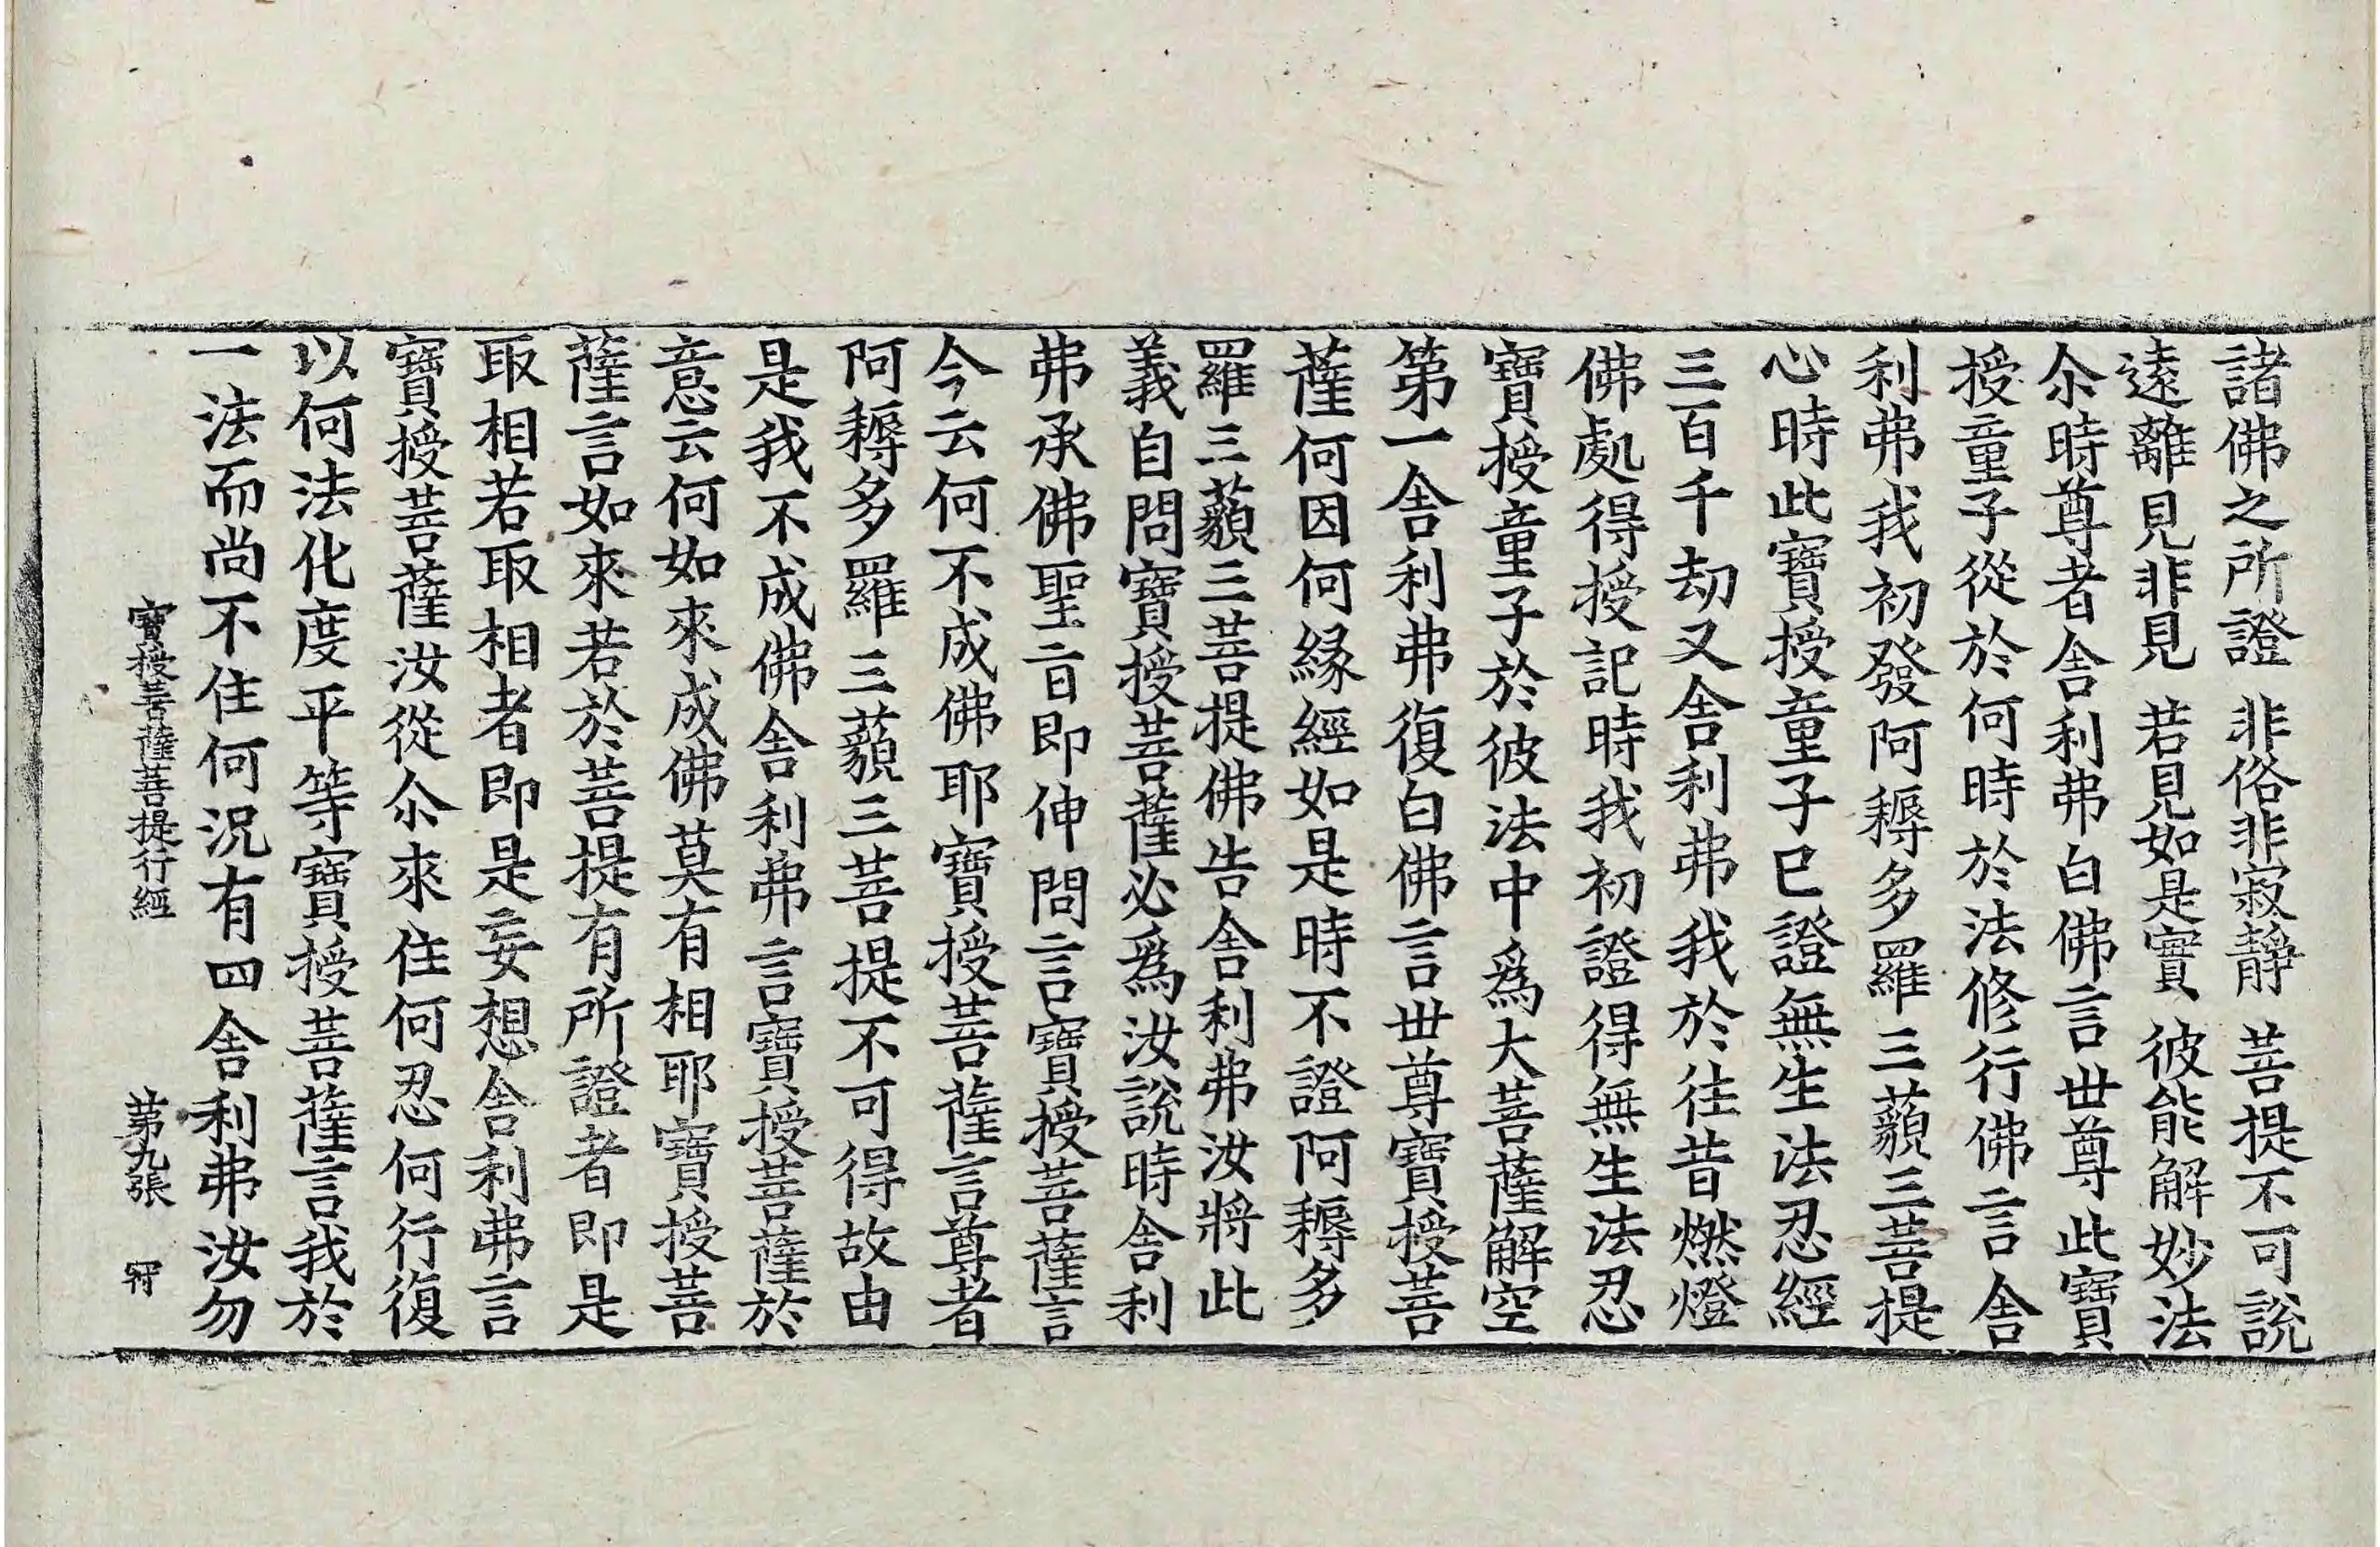 諸佛之所證　非俗非寂静　菩提不可說
遠離見非見　若見如是實　彼能解妙法
尒時尊者舍利弗白佛言世尊此寶
授童子從於何時於法修行佛言舍
利弗我初發阿耨多羅三藐三菩提
心時此寶授童子已證無生法忍經
三百千劫又舍利弗我於往昔燃燈
佛處得授記時我初證得無生法忍
寶授童子於彼法中爲大菩薩解空
第一舍利弗復白佛言世尊寶授菩
薩何因何緣經如是時不證阿耨多
羅三藐三菩提佛告舍利弗汝將此
義自問寶授菩薩必爲汝說時舍利
弗承佛聖旨即伸問言寶授菩薩言
今云何不成佛耶寶授菩薩言尊者
阿耨多羅三藐三菩提不可得故由
是我不成佛舍利弗言寶授菩薩於
意云何如來成佛莫有相耶寶授菩
薩言如來若於菩提有所證者即是
取相若取相者即是妄想舍利弗言
寶授菩薩汝從尒來住何忍何行復
以何法化度平等寶授菩薩言我於
一法而尚不住何況有四舍利弗汝勿
寶授菩薩菩提行經　第九張　冠